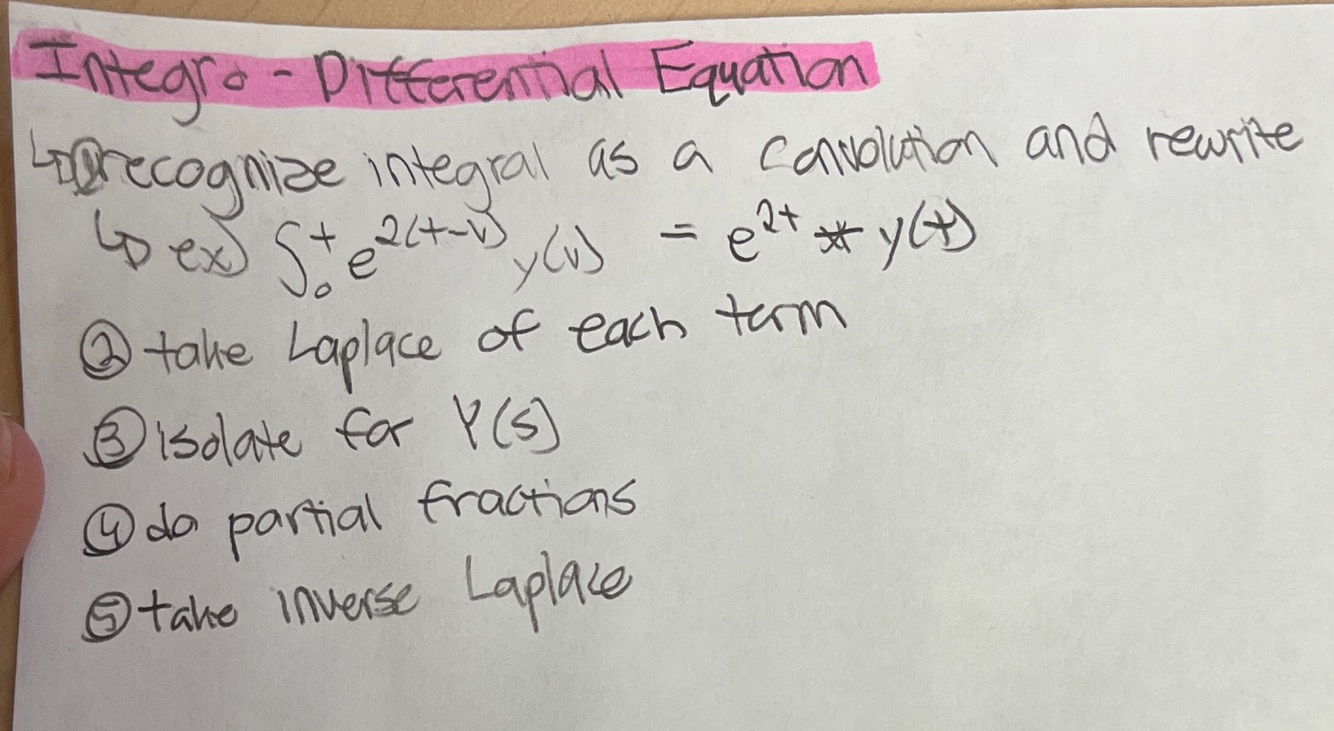 Integro-Differential Equation
↳ ① recognize integral as a convolution and rewrite
↳ ex) ∫₀ᵗ e^{2(t-v)} y(v) = e^{2t} * y(t)
② take Laplace of each term
③ isolate for Y(s)
④ do partial fractions
⑤ take inverse Laplace